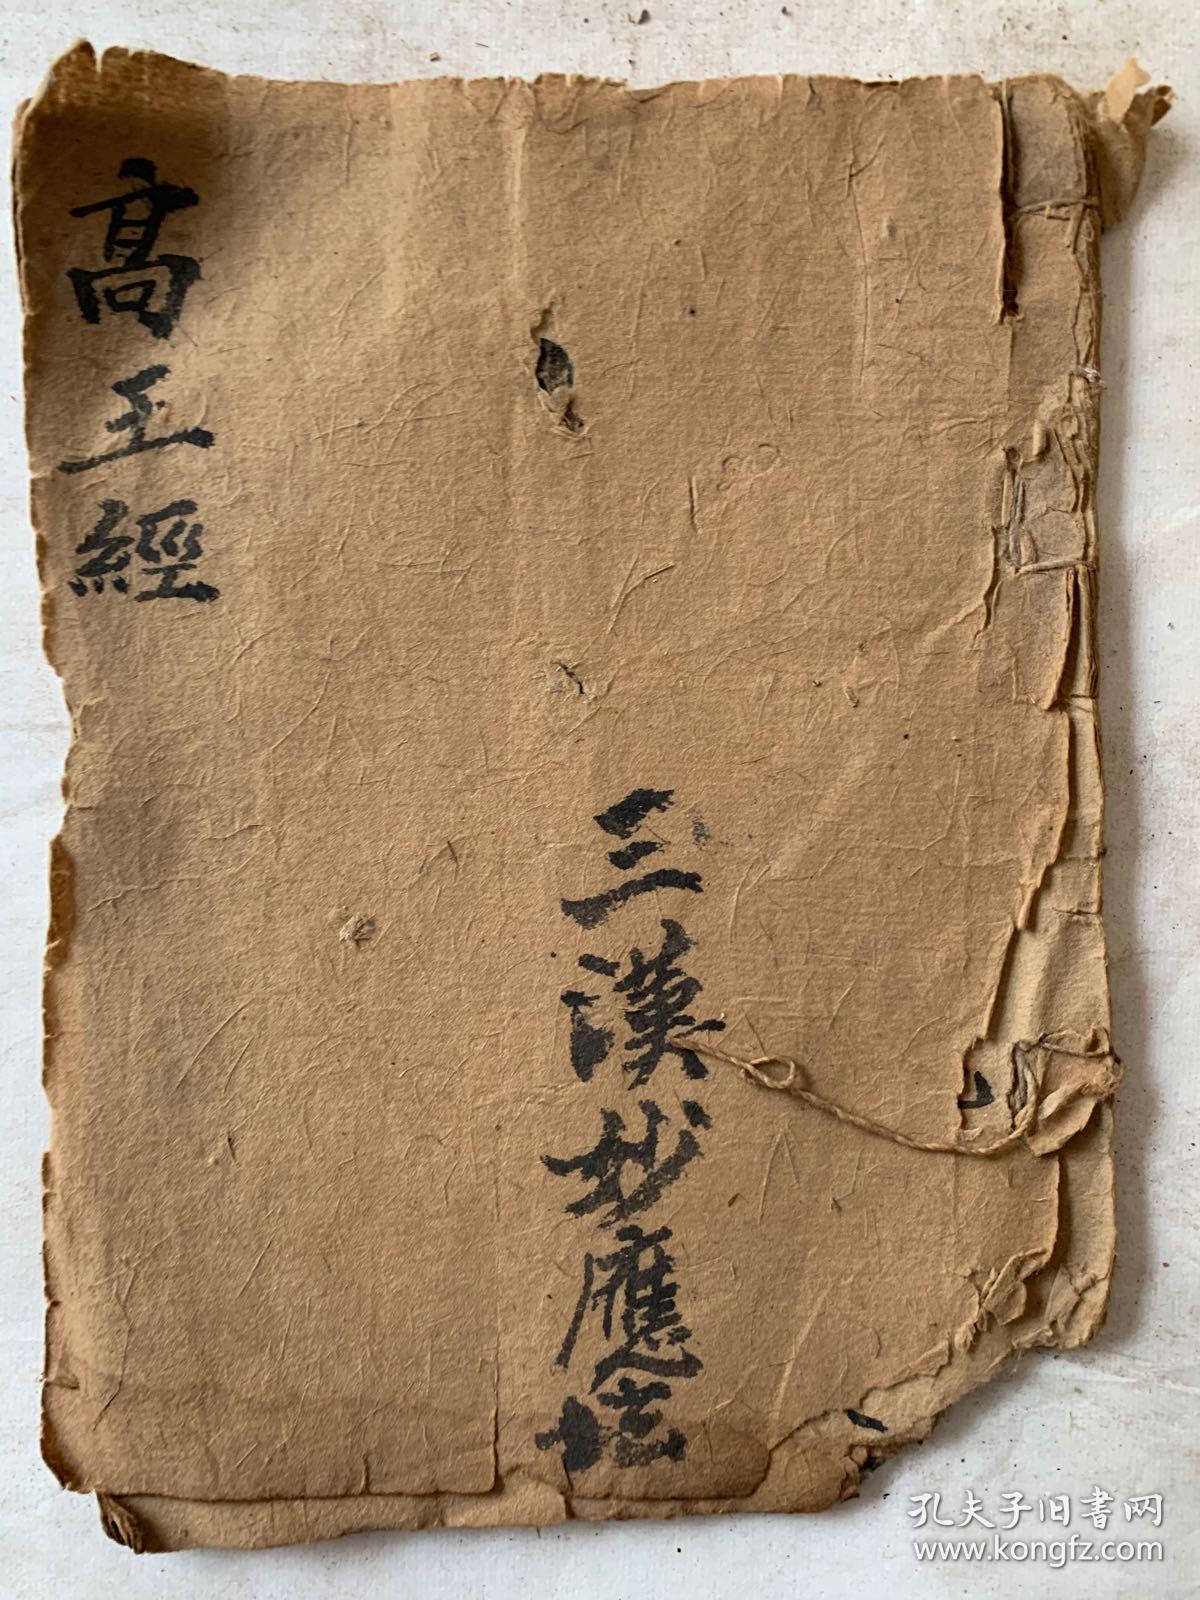 高王經
三漢妙應
孔夫子旧書网
www.kongfz.com